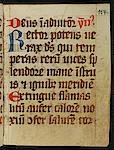 Deus in adiutoriu yn9
Rector potens ve
rax ds qui tem
peras reru uices sp
lendore mane istru
is et ignibz meridie
Extingue flamas
litiu aufer calore no
xiu ofer salute cor